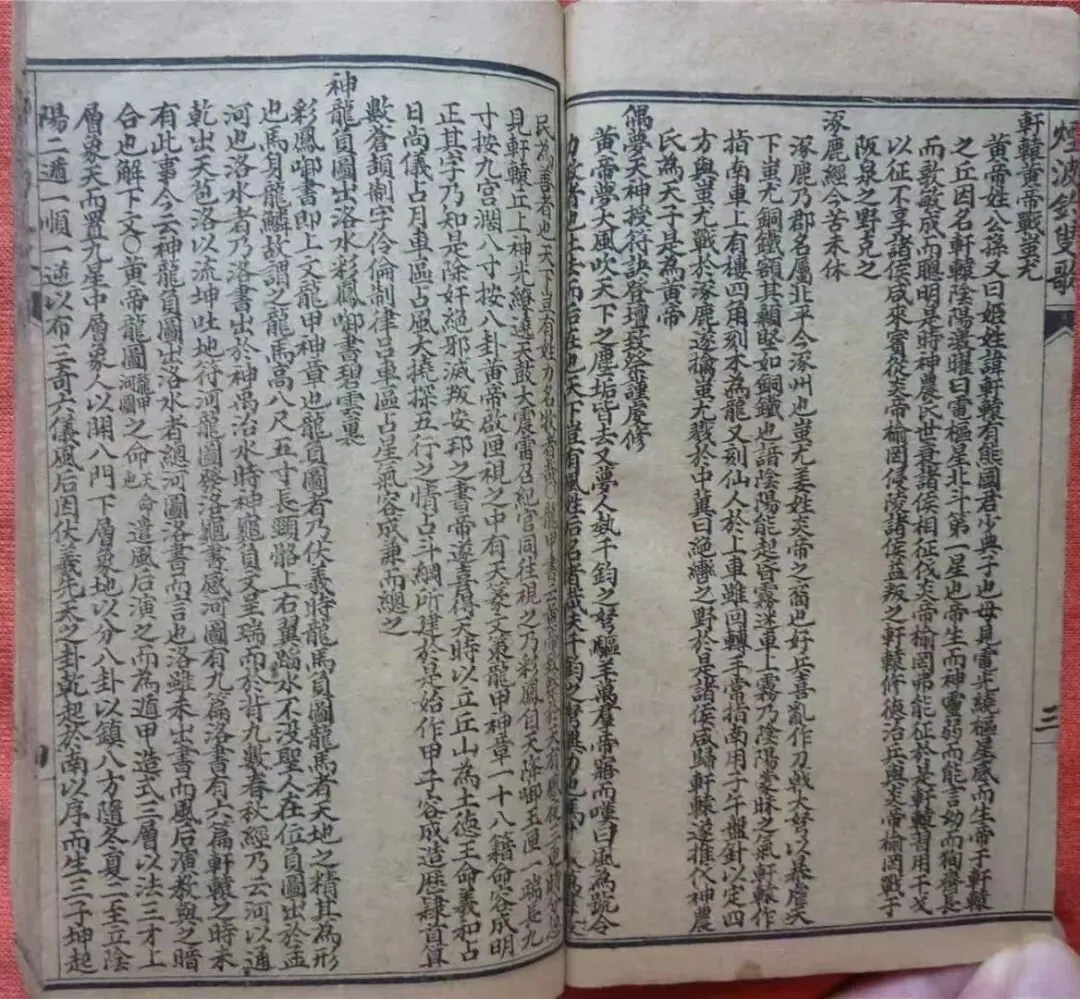 煙波釣叟歌
三
軒轅黃帝戰蚩尤
黃帝姓公孫又曰姬姓諱軒轅有熊國君少典子也母見電光繞樞星感而生帝于軒轅
之丘因名軒轅陰陽濃曜曰電樞星北斗第一星也帝生而神靈弱而能言幼而徇齊長
而敦敏成而聰明是時神農氏世衰諸侯相征伐炎帝榆罔弗能征於是軒轅習用干戈
以征不享諸侯咸來賓從炎帝榆罔侵陵諸侯益叛之軒轅修德治兵與炎帝榆罔戰于
阪泉之野克之
涿鹿經今苦未休
涿鹿乃郡名屬北平今涿州也蚩尤姜姓炎帝之裔也好兵喜亂作刀戟大弩以暴虐天
下蚩尤銅鐵額其顙堅如銅鐵也諳陰陽能起昏霧迷車上霧乃陰陽蒙昧之氣軒轅作
指南車上有樓四角刻木為龍又刻仙人於上車雖回轉手常指南用子午盤針以定四
方與蚩尤戰於涿鹿遂擒蚩尤戮於中冀曰絕轡之野於是諸侯咸歸軒轅遂推代神農
氏為天子是為黃帝
偶夢天神授符訣登壇致祭謹虔修
黃帝夢大風吹天下之塵垢皆去又夢人執千鈞之弩驅羊萬群帝寤而嘆曰風為號令
者也土去而后在也天下豈有風姓后名者哉夫千鈞之弩異力也
民為善者也天下豈有姓力名牧者哉○龍甲書云黃帝
見軒轅丘上神光繚遶天鼓大震雷召紀官同往視之乃彩鳳自天降啣玉匣一端長九
寸按九宮濶八寸按八卦黃帝啟匣視之中有天篆文冊龍甲神章一十八篇命容成明
正其字乃知是除奸絕邪滅叛安邦之書帝遂喜得天時以立丘山為土德王命羲和占
日尚儀占月車區占風大撓探五行之情占斗綱所建於是始作甲子容成造歷隸首算
數蒼頡制字伶倫制律呂車區占星氣容成兼而總之
神龍負圖出洛水彩鳳啣書碧雲裏
彩鳳啣書即上文龍甲神章也龍負圖者乃伏羲時龍馬負圖龍馬者天地之精其為形
也馬身龍鱗故謂之龍馬高八尺五寸長頸骼上右翼蹈水不沒聖人在位負圖出於孟
河也洛水者乃洛書出於神禹治水時神龜負文呈瑞而於背九數春秋經乃云河以通
乾出天苞洛以流坤吐地符河龍圖發洛龜書感河圖有九篇洛書有六篇軒轅之時未
有此事今云神龍負圖出洛水者總河圖洛書而言也洛雖未出書而風后演教與之暗
合也解下文○黃帝龍圖龍甲河圖之命天命也遣風后演之而為遁甲造式三層以法三才上
層象天而置九星中層象人以開八門下層象地以分八卦以鎮八方隨冬夏二至立陰
陽二遁一順一逆以布三奇六儀風后因伏羲先天之卦乾起於南以序而生三子坤起